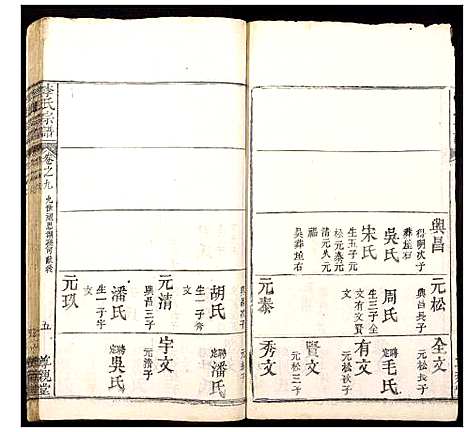 興昌
得明次子
吳氏
葬鱼右
宋氏
生五子元
松元泰元
清元久元
福
吳葬鱼右
元松
興昌長子
周氏
生三子全
文有文賢
文
元泰
興昌次子
胡氏
生一子秀
文
元清
興昌三子
潘氏
生一子宇
文
元玖
全文
元松長子
聘定毛氏
有文
元松次子
賢文
元松三子
秀文
聘定潘氏
宇文
元清子
聘定吳氏
李氏宗譜
卷之九
五
尊親堂